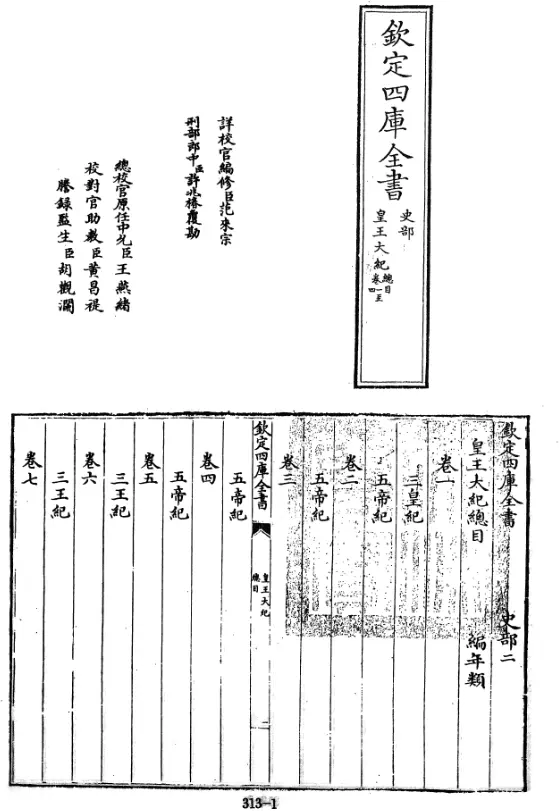 欽定四庫全書
史部
皇王大紀
總目
卷一至
四
詳校官編修臣范來宗
刑部郎中臣許兆椿覆勘
總校官原任中允臣王燕緒
校對官助教臣黃昌禔
謄錄監生臣胡觀瀾
欽定四庫全書 史部二
皇王大紀總目 編年類
卷一
三皇紀
卷二
五帝紀
五帝紀
卷三
五帝紀
欽定四庫全書
皇王大紀
總目
一
卷四
五帝紀
卷五
三王紀
卷六
三王紀
卷七
313-1